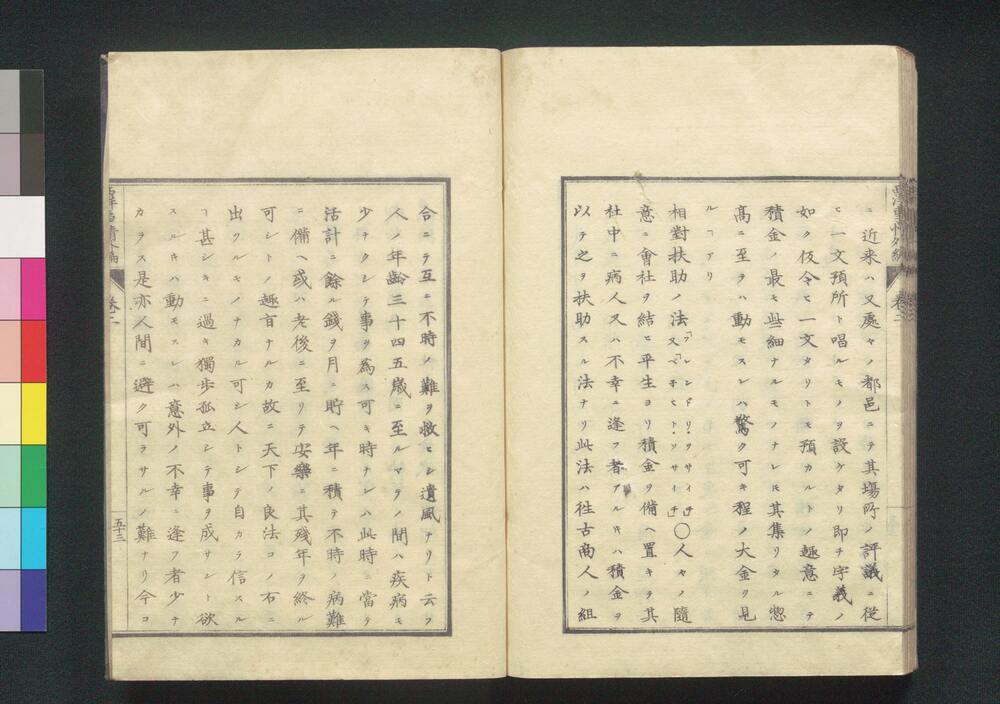 ニ近来ハ又處々ノ都邑ニテ其場所ノ評議ニ従
ヒ一文預所ト唱ルモノヲ設ケタリ即チ字義ノ
如ク仮令ヒ一文タリトモ預カルトノ趣意ニテ
積金ノ最モ些細ナルモノナレ𪜈其集リタル惣
髙ニ至テハ動モスレハ驚ク可キ程ノ大金ヲ見
ルヿアリ
相對扶助ノ法「フレンドリ・ソサイ𪜈チ」又「ベネヒト・ソサイ𪜈チ」〇人々ノ隨
意ニ會社ヲ結ヒ平生ヨリ積金ヲ備ヘ置キテ其
社中ニ病人又ハ不幸ニ逢フ者アルキハ積金ヲ
以テ之ヲ扶助スル法ナリ此法ハ往古商人ノ組
合ニテ互ニ不時ノ難ヲ救ヒシ遺風ナリト云フ
人ノ年齢三十四五歳ニ至ルマテノ間ハ疾病モ
少ナクシテ事ヲ為ス可キ時ナレハ此時ニ當テ
活計ニ餘ル錢ヲ月ニ貯ヘ年ニ積テ不時ノ病難
ニ備ヘ或ハ老後ニ至リテ安樂ニ其残年ヲ終ル
可シトノ趣旨ナルカ故ニ天下ノ良法コノ右ニ
出ツルモノナカル可シ人トシテ自カラ信スル
ヿ甚シキニ過キ獨歩孤立シテ事ヲ成サント欲
スルキハ動モスレハ意外ノ不幸ニ逢フ者少ナ
カラス是亦人間ニ避ク可ラサルノ難ナリ今コ
五十三